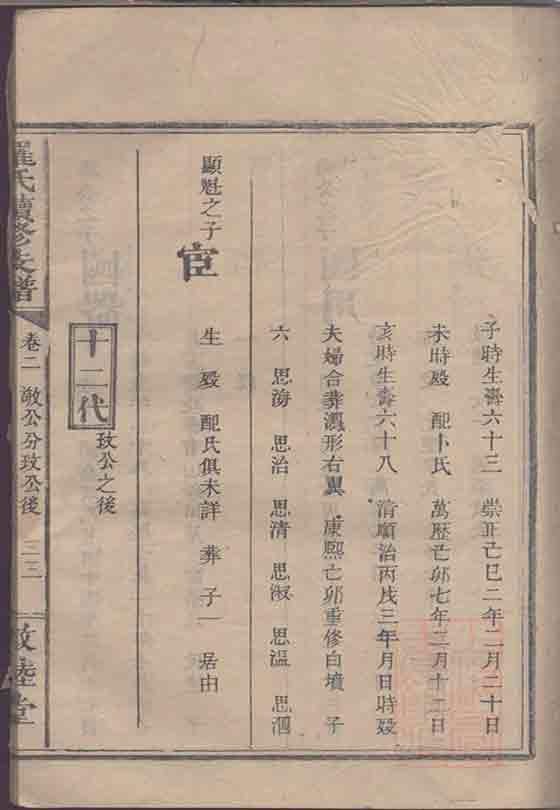 子時生壽六十三　崇正己巳二年二月二十日
未時歿　配卜氏　萬歷己卯七年三月十二日
亥時生壽六十八　清順治丙戌三年月日時歿
夫婦合葬瀉形右翼　康熙己卯重修白墳　子
六　思海　思治　思清　思淑　思溫　思泗
顯魁之子
宦
生　歿　配氏俱未詳　葬　子一　居由
十二代
玫公之後
羅氏續修支譜
卷二　敵公分玫公後　三三
敦睦堂